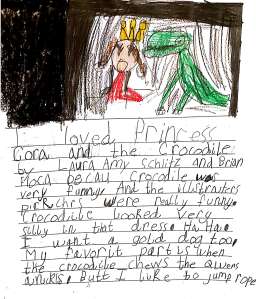 I loved Princess
Cora and the Crocodile
by Laura Amy Schlitz and Brian
Floca becau crocodile was
very funny. And the illustraters
were really funny.
Crocodile looked very
silly in that dress. Ha Ha.
I want a gold dog too.
My favorit part is when
the crocodile chews the
Butt I like to jump rope